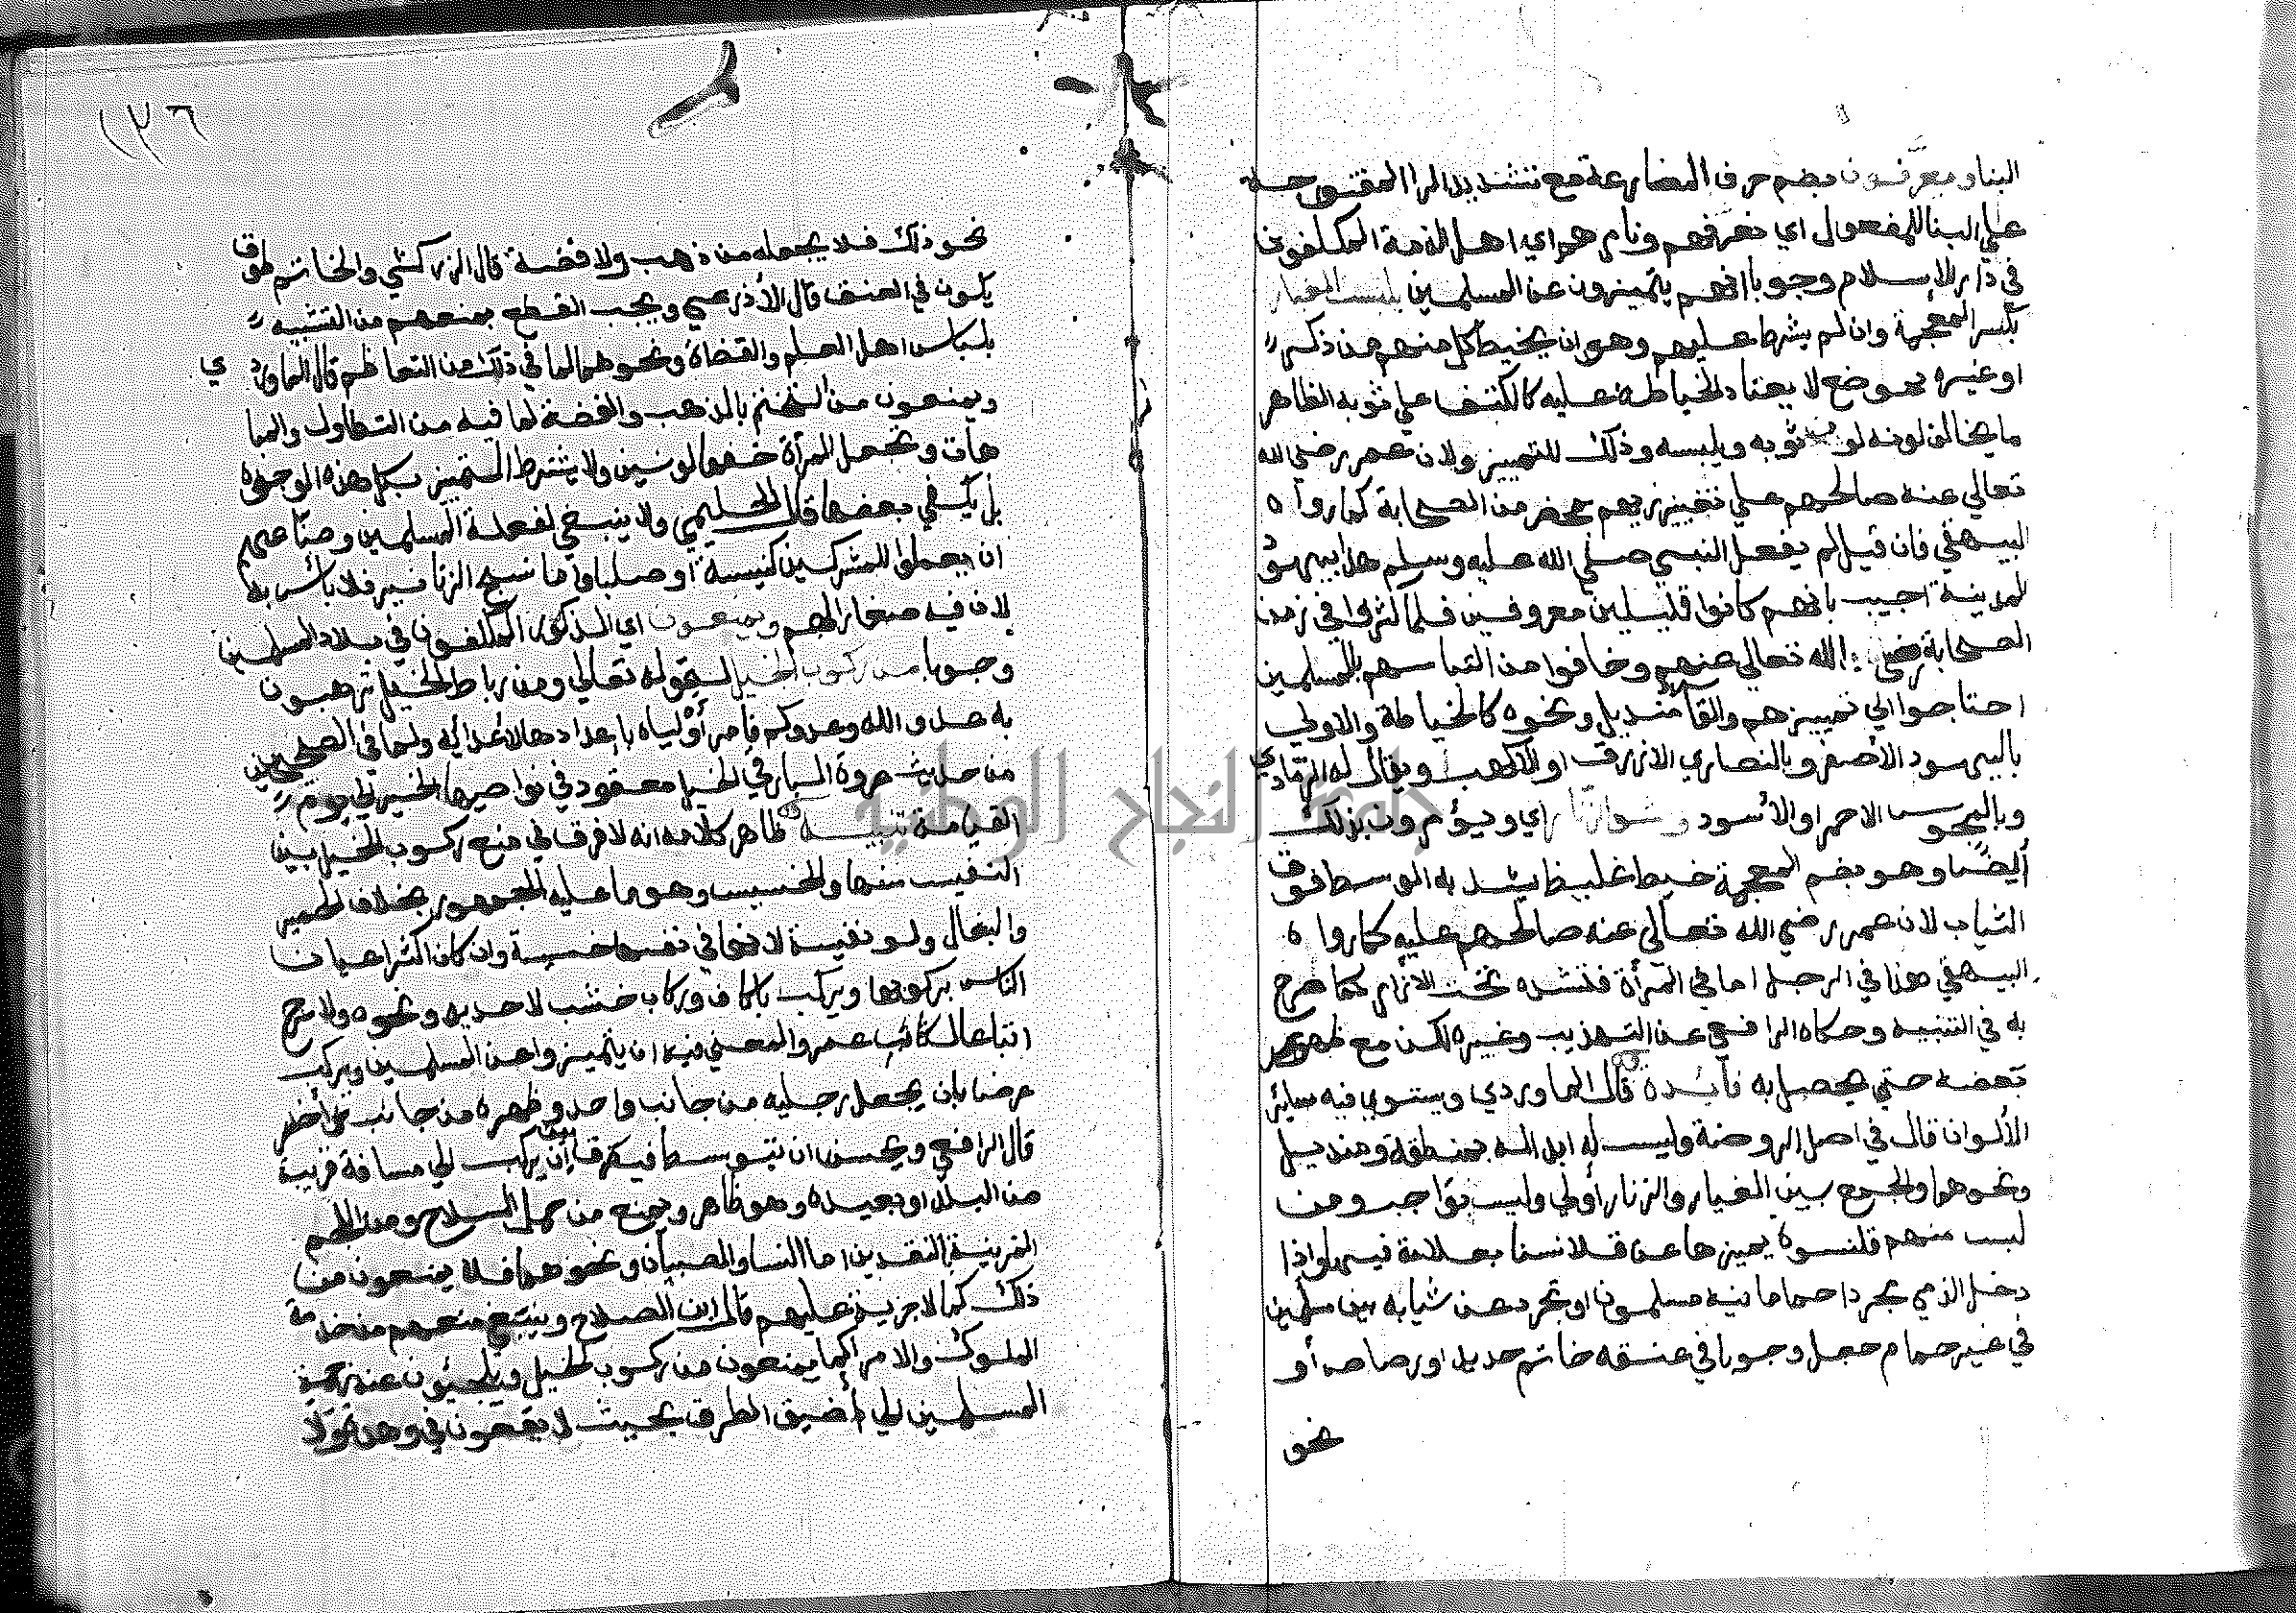 البنا ويعرفون بضم حرف المضارعة مع تشديد الرا المفتوحة
علي البنا للمفعول اي نعرفهم ونامرهم اي اهل الذمة المكلفون
في دار الاسلام وجوبا انهم يتميزون عن المسلمين بلبس الغيار
بكسر المعجمة وان لم يشرط عليهم وهو ان يخيط كل منهم من ذكر
او غيره بموضع لا يعتاد الخياطة عليه كالكتف علي ثوبه الظاهر
ما يخالف لونه لون ثوبه ويلبسه وذلك للتمييز ولان عمر رضي الله
تعالي عنه صالحهم علي تغيير زيهم بمحضر من الصحابة كما رواه
البيهقي فان قيل لم يفعل النبي صلي الله عليه وسلم هذا بيهود
المدينة اجيب بانهم كانوا قليلين معروفين فلما كثروا في زمن
الصحابة رضي الله تعالي عنهم وخافوا من التباسهم بالمسلمين
احتاجوا الي تمييزهم والقا منديل ونحوه كالخياطة والاولي
باليهود الأصفر وبالنصاري الازرق او الأكهب ويقال له الرمادي
وبالمجوس الاحمر او الأسود وشد الزنار اي ويؤمرون بذلك
أيضا وهو بضم المعجمة خيط غليظ يشد به الوسط فوق
الثياب لان عمر رضي الله تعالي عنه صالحهم عليه كما رواه
البيهقي هذا في الرجل اما في المرأة فتشده تحت الازار كما صرح
به في التنبيه وحكاه الرافعي عن التهذيب وغيره لكن مع ظهور
بعضه حتي يحصل به فائدة قال الماوردي ويستوي فيه سائر
الألوان قال في اصل الروضة وليس له ابداله بمنطقة ومنديل
ونحوهما والجمع بين الغيار والزنار أولي وليس بواجب ومن
لبس منهم قلنسوة يميزها عن قلانسنا بعلامة فيها واذا
دخل الذمي مجردا حماما فيه مسلمون او تجرد عن ثيابه بين مسلمين
في غير حمام جعل وجوبا في عنقه خاتم حديد او رصاص أو
نحو
١٣٦
نحو ذلك فلا يجعله من ذهب ولا فضة قال الزركشي والخاتم طوق
يكون في العنق قال الأذرعي ويجب القطع بمنعهم من التشبيه
بلباس اهل العلم والقضاة ونحوهم لما في ذلك من التعاظم قال الماوردي
ويمنعون من التختم بالذهب والفضة لما فيه من التطاول والمبا
هات وتجعل المرأة خفها لونين ولا يشترط التمييز بكل هذه الوجوه
بل يكفي بعضها قال الحليمي ولا ينبغي لفعلة المسلمين وصناعهم
ان يعملوا للمشركين كنيسة او صليبا وأما نسج الزنانير فلا بأس به
لان فيه صغارا لهم ويمنعون اي الذكور المكلفون في بلاد المسلمين
وجوبا من ركوب الخيل لقوله تعالي ومن رباط الخيل ترهبون
به عدو الله وعدوكم فأمر أولياه باعدادها لاعدائه ولما في الصحيحين
من حديث عروة البارقي الخيل معقود في نواصيها الخير الي يوم
القيامة تنبيه ظاهر كلامه انه لا فرق في منع ركوب الخيل بين
النفيس منها والخسيس وهو ما عليه الجمهور بخلاف الحمير
والبغال ولو نفيسة لانها في نفسها خسيسة وان كان اكثر اعيان
الناس يركبونها ويركب باكاف وركاب خشب لا حديد ونحوه ولا سرج
اتباعا لكتاب عمر والمعني فيه ان يتميزوا عن المسلمين ويركب
عرضا بان يجعل رجليه من جانب واحد وظهره من جانب آخر
قال الرافعي ويحسن ان يتوسط فيفرق بين أن يركب الي مسافة قريبة
من البلد او بعيدة وهو ظاهر ويمنع من حمل السلاح ومن اللجم
المزينة بالنقدين اما النسا والصبيان ونحوهما فلا يمنعون من
ذلك كما لا جزية عليهم قال ابن الصلاح وينبغي منعهم من خدمة
الملوك والامرا كما يمنعون من ركوب الخيل ويلجئون عند زحمة
المسلمين الي أضيق الطرق بحيث لا يقعون في وهدة ولا
جامعة النجاح الوطنية